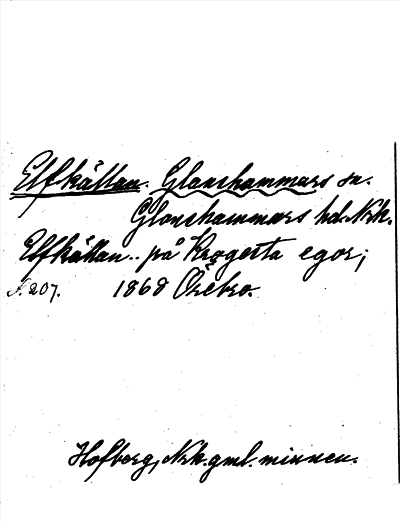 Elfkällan. Glanshammars sn.
Glanshammars hd. Nrk.
Elfkällan.. på Krogesta egor;
S. 207. 1868 Örebro.
Hofberg, Nrk. gml. minnen.